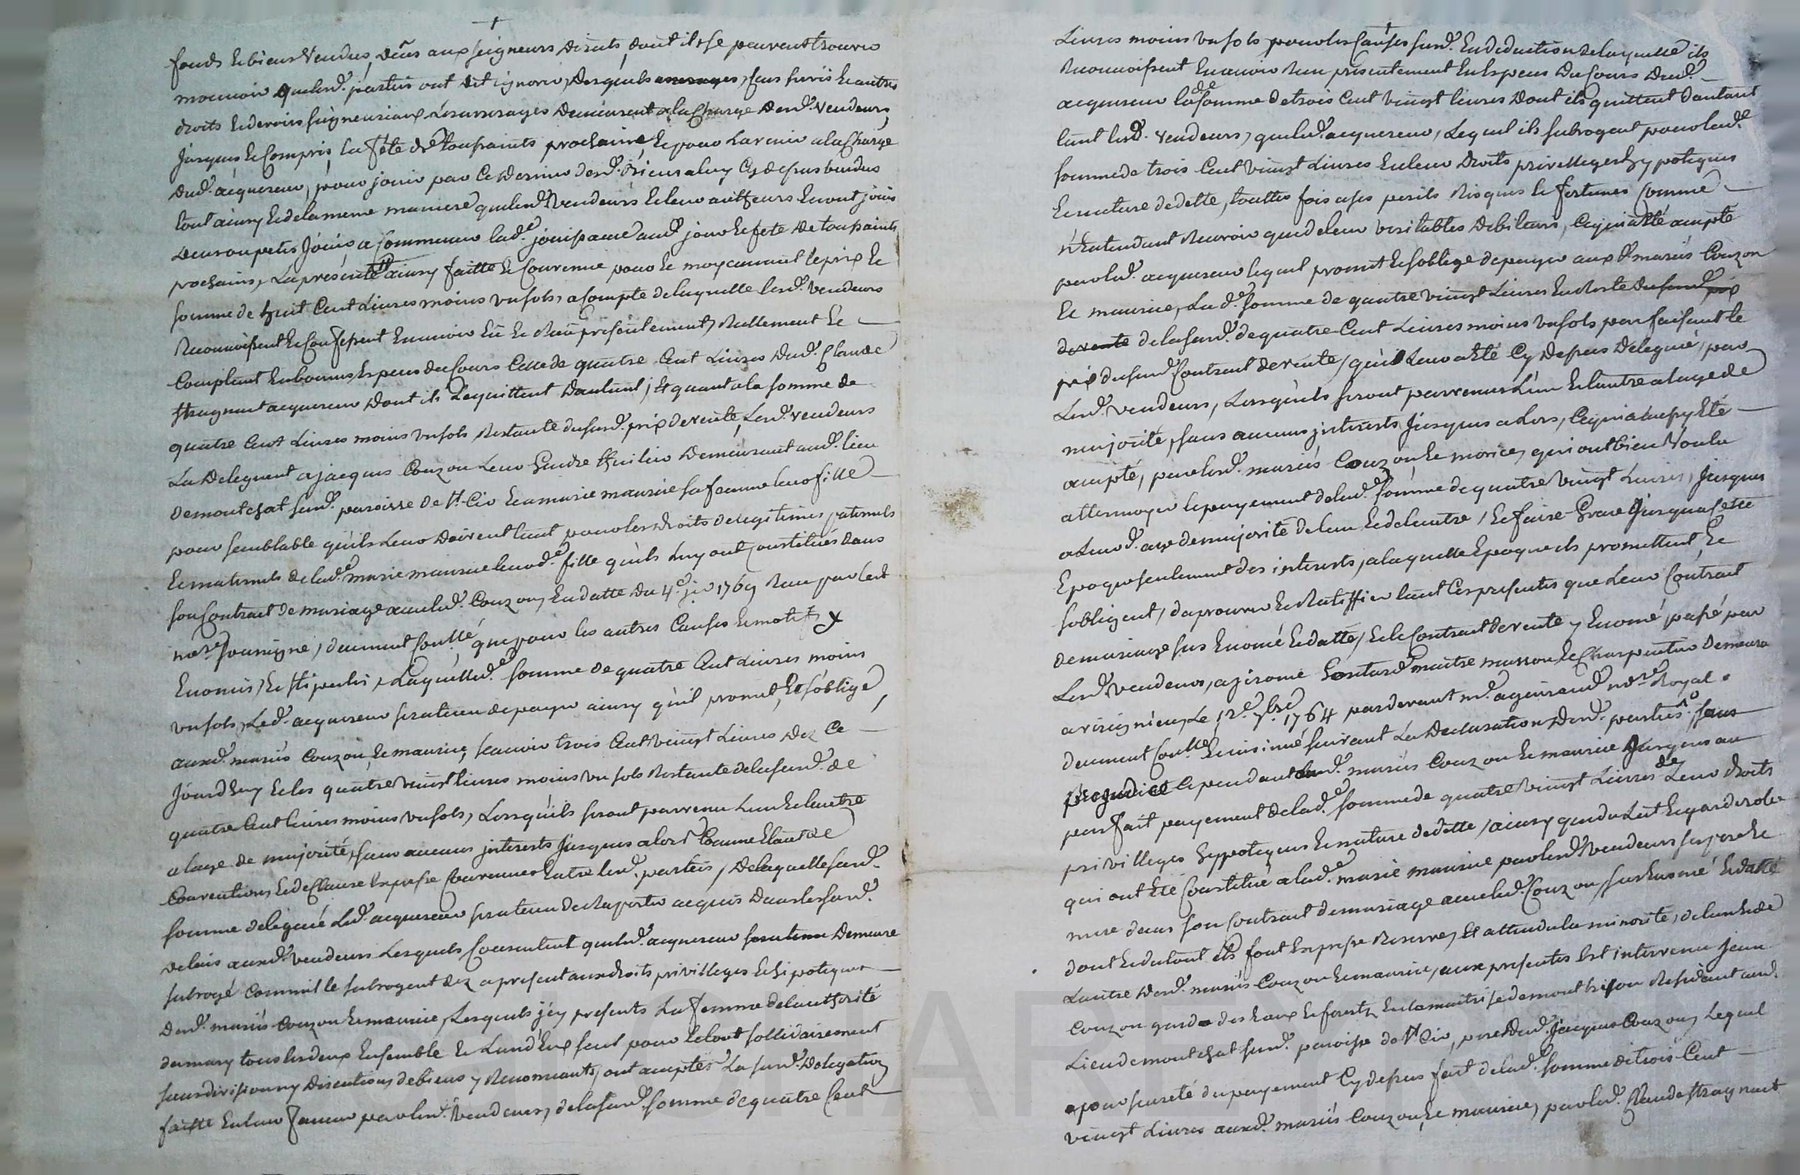 fonds et biens vendus, deûs aux seigneurs directs dont ils se peuvent trouver
mouvoir que lesd. parties ont dit ignorer, desquels servis et autres
droits et devoirs seigneuriaux les arrerages demeurent a la charge desd. vendeurs
jusques et compris la fête de toussaints prochaine et pour l'avenir a la charge
dud. acquereur, pour jouir par ce dernier desd. a luy cy dessus vendus
tout ainsy et de la meme maniere que lesd. vendeurs et leurs autheurs en ont joüis
deu ou peus joüir a commencer lad.e jouissance aud. jour et fete de toussaints
prochains, la présente vente ainsy faitte et convenue pour et moyennant le prix et
somme de huit cent livres moins un sols, a compte de laquelle lesd. vendeurs
reconnoissent et confessent en avoir eü et reçu présentement, reellement et
comptant en bonnes especes du cours celle de quatre cent livres dud. Claude
Thragnat acquereur dont ils l'equittent d'autant, et quant a la somme de
quatre cent livres moins un sols restante dususd. prix de vente, lesd. vendeurs
la deleguent a jacques Couzon leur gendre huilier demeurant aud. lieu
de montchat susd. paroisse de st. Cir et a marie maurice sa femme leur fille
pour semblable qu'ils leur doivent tant pour les droits de legitimes paternels
et maternels de lad.e marie maurice leurd.e fille qu'ils luy ont constitués dans
son contrat de mariage avec led. Couzon, en datte du 4e. 1769 reçu par led.
no.re soussigné, deument controllé que pour les autres causes et motifs y
enoncés, et stipulés, laquelle d.e somme de quatre cent livres moins
un sols, led. acquereur sera tenu de payer ainsy qu'il promet et s'oblige,
auxd. mariés Couzon et maurice, scavoir trois cent vingt livres dez ce
jourd'huy et les quatre vingt livres moins un sols restante de la susd. de
quatre cent livres moins un sols, lorsqu'ils seront parvenu l'un et l'autre
a l'age de majorité, sans aucuns jnterests jusques alors comme
conventions et de clause expresse convenue entre lesd. parties, de laquelle susd.
somme deleguée led. acquereur sera tenu de raporter acquis dans les susd.
delais auxd. vendeurs lesquels consentent que led. acquereur demeure
subrogé comm'il le subrogent dez a present aux droits privilleges et hipoteques
desd. mariés Couzon et maurice, lesquels jcy presents la femme de l'authorité
du mary tous les deux ensemble et l'un d'eux seul pour le tout sollidairement
sans division ny discution de biens y renonceants, ont acceptés la susd. delegation
faitte en leur faveur par lesd. vendeurs, de la susd. somme de quatre cent
livres moins un sols pour les causes susd. en deduction de laquelle ils
reconnoissent en avoir reçu présentement en especes du cours dud.
acquereur lad.e somme de trois cent vingt livres dont ils quittent d'autant
tant lesd. vendeurs, que led. acquereur, lequel ils subrogent pour lad.e
somme de trois cent vingt livres en leur droits privilleges hypoteques
et nature de dette, touttes fois a ses perils risques et fortunes comme
n'entendant recevoir que de leur véritables debiteurs, ce qui a été accepté
par led. acquereur lequel promet et s'oblige de payer aux d. mariés Couzon
et maurice, lad.e somme de quatre vingt livres en reste
de la susd. de quatre cent livres moins un sols parfaisant le
prix dususd. contrat de vente, qui leur a été cy dessus deleguée, par
lesd. vendeurs, lorsqu'ils seront parvenus l'un et l'autre a l'age de
majorité, sans aucuns jnterests jusques alors, ce qui a aussy été
accepté, par lesd. mariés Couzon et morice, qui ont bien voulu
attermoyer le payement de lad.e somme de quatre vingt livres, jusques
a leurd. age de majorité de l'un et de l'autre, et faire grace jusqu'a cette
epoque seulement des interests, a laquelle epoque ils promettent et
s'obligent, d'aprouver et ratiffier tant ces presentes que leur contrat
de mariage sus enoncé et datté, et le contrat de vente y enoncé passé par
lesd. vendeurs, a jirome Gontard maitre masson et charpentier demeurant
a risignieu, le 12e. 7bre 1764 pardevant me. aguiraud no.re royal
deument controllé et insinué suivant la declaration desd. parties, sans
préjudice cependant auxd. mariés Couzon et maurice jusques au
parfait payement de lad.e somme de quatre vingt livres de leur droits
privilleges hypoteques et nature de dette, ainsy que du lit et garderobe
qui ont été constitué a lad.e marie maurice par lesd. vendeurs ses pere et
mere dans son contrat de mariage avec led. Couzon, sus enoncé et datté
dont et du tout ils font expresse reserve, et attendu la minorité, de l'un et de
l'autre desd. mariés Couzon et maurice, aux presentes est intervenu jean
Couzon garde des eaux et forests en la maitrise de montbrison residant aud.
lieu de montchat susd. paroisse de st. Cir, pere dud. jacques Couzon, lequel
pour sureté du payement cy dessus fait de lad.e somme de trois cent
vingt livres auxd. mariés Couzon et maurice, par led. Claude thragnat